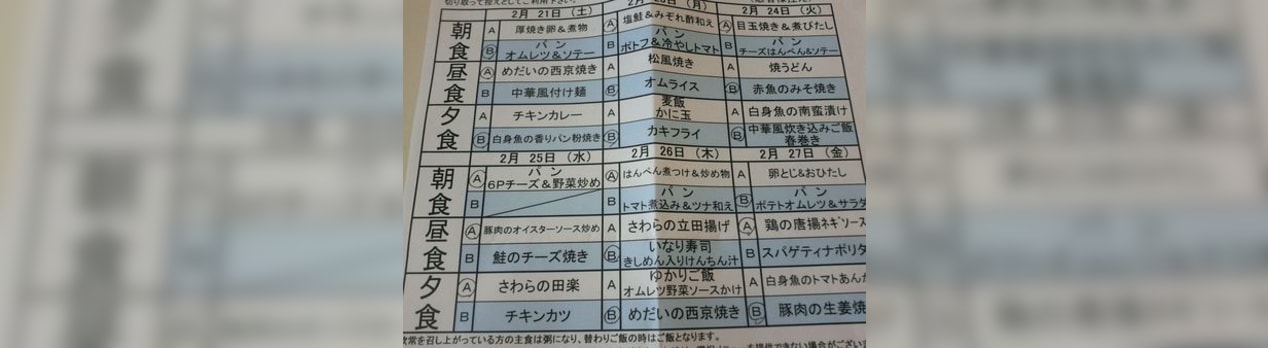 切り取って控えとしてご利用下さい。
2月 21日 (土)
(月)
2月 24日 (火)
朝食
A 厚焼き卵&煮物
A 塩鮭&みぞれ酢和え
A 目玉焼き&煮びたし
B パン
オムレツ&ソテー
B パン
ポトフ&冷やしトマト
B パン
チーズはんぺん&ソテー
昼食
A めだいの西京焼き
A 松風焼き
A 焼うどん
B 中華風付け麺
B オムライス
B 赤魚のみそ焼き
夕食
A チキンカレー
A 麦飯
かに玉
A 白身魚の南蛮漬け
B 白身魚の香りパン粉焼き
B カキフライ
B 中華風炊き込みご飯
春巻き
2月 25日 (水)
2月 26日 (木)
2月 27日 (金)
朝食
A パン
6Pチーズ&野菜炒め
A はんぺん煮つけ&炒め物
A 卵とじ&おひたし
B
B パン
トマト煮込み&ツナ和え
B パン
ポテトオムレツ&サラダ
昼食
A 豚肉のオイスターソース炒め
A さわらの立田揚げ
A 鶏の唐揚ネギソース
B 鮭のチーズ焼き
B いなり寿司
きしめん入りけんちん汁
B スパゲティナポリタ
夕食
A さわらの田楽
A ゆかりご飯
オムレツ野菜ソースかけ
A 白身魚のトマトあんか
B チキンカツ
B めだいの西京焼き
B 豚肉の生姜焼
常を召し上がっている方の主食は粥になり、替わりご飯の時はご飯となります。
提供できない場合がござい